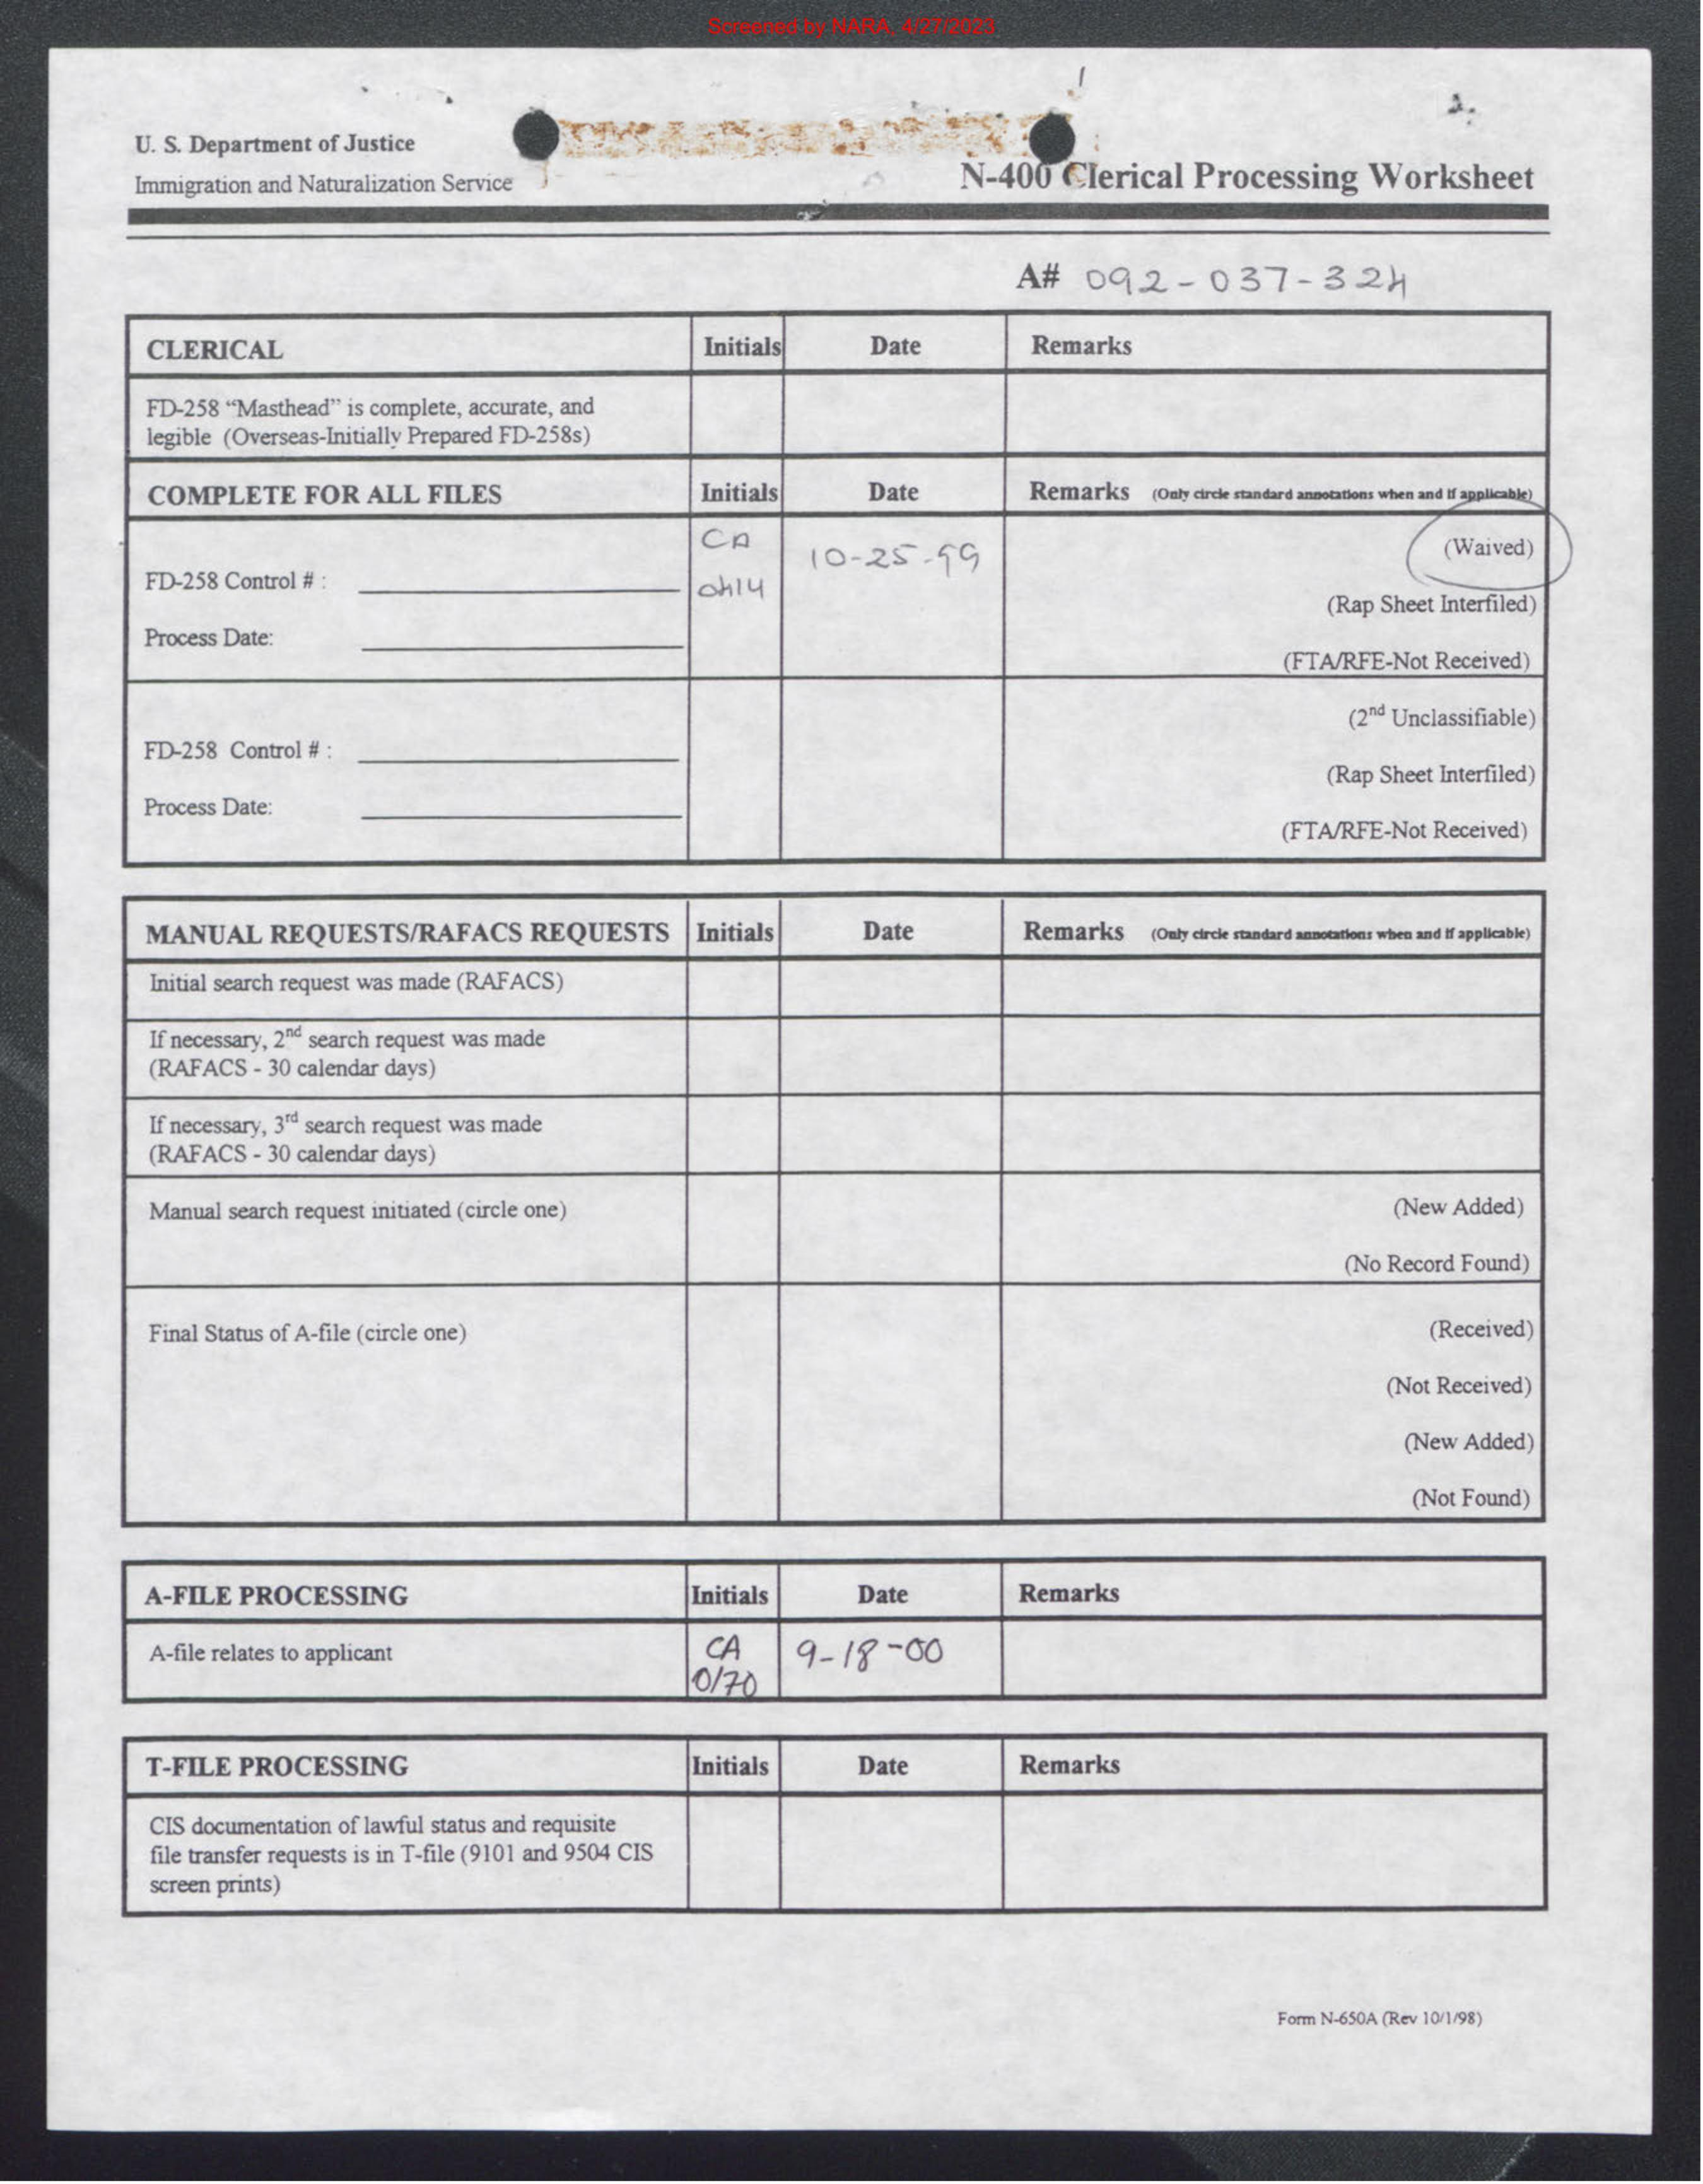 Screened by NARA, 4/27/2023
U. S. Department of Justice
Immigration and Naturalization Service
N-400 Clerical Processing Worksheet
A# 092-037-324
CLERICAL Initials Date Remarks
FD-258 “Masthead” is complete, accurate, and
legible (Overseas-Initially Prepared FD-258s)
COMPLETE FOR ALL FILES Initials Date Remarks (Only circle standard annotations when and if applicable)
CA 10-25-99 (Waived)
FD-258 Control # : 0414
(Rap Sheet Interfiled)
Process Date:
(FTA/RFE-Not Received)
(2nd Unclassifiable)
FD-258 Control # :
(Rap Sheet Interfiled)
Process Date:
(FTA/RFE-Not Received)
MANUAL REQUESTS/RAFACS REQUESTS Initials Date Remarks (Only circle standard annotations when and if applicable)
Initial search request was made (RAFACS)
If necessary, 2nd search request was made
(RAFACS - 30 calendar days)
If necessary, 3rd search request was made
(RAFACS - 30 calendar days)
Manual search request initiated (circle one) (New Added)
(No Record Found)
Final Status of A-file (circle one) (Received)
(Not Received)
(New Added)
(Not Found)
A-FILE PROCESSING Initials Date Remarks
A-file relates to applicant CA 9-18-00
0170
T-FILE PROCESSING Initials Date Remarks
CIS documentation of lawful status and requisite
file transfer requests is in T-file (9101 and 9504 CIS
screen prints)
Form N-650A (Rev 10/1/98)